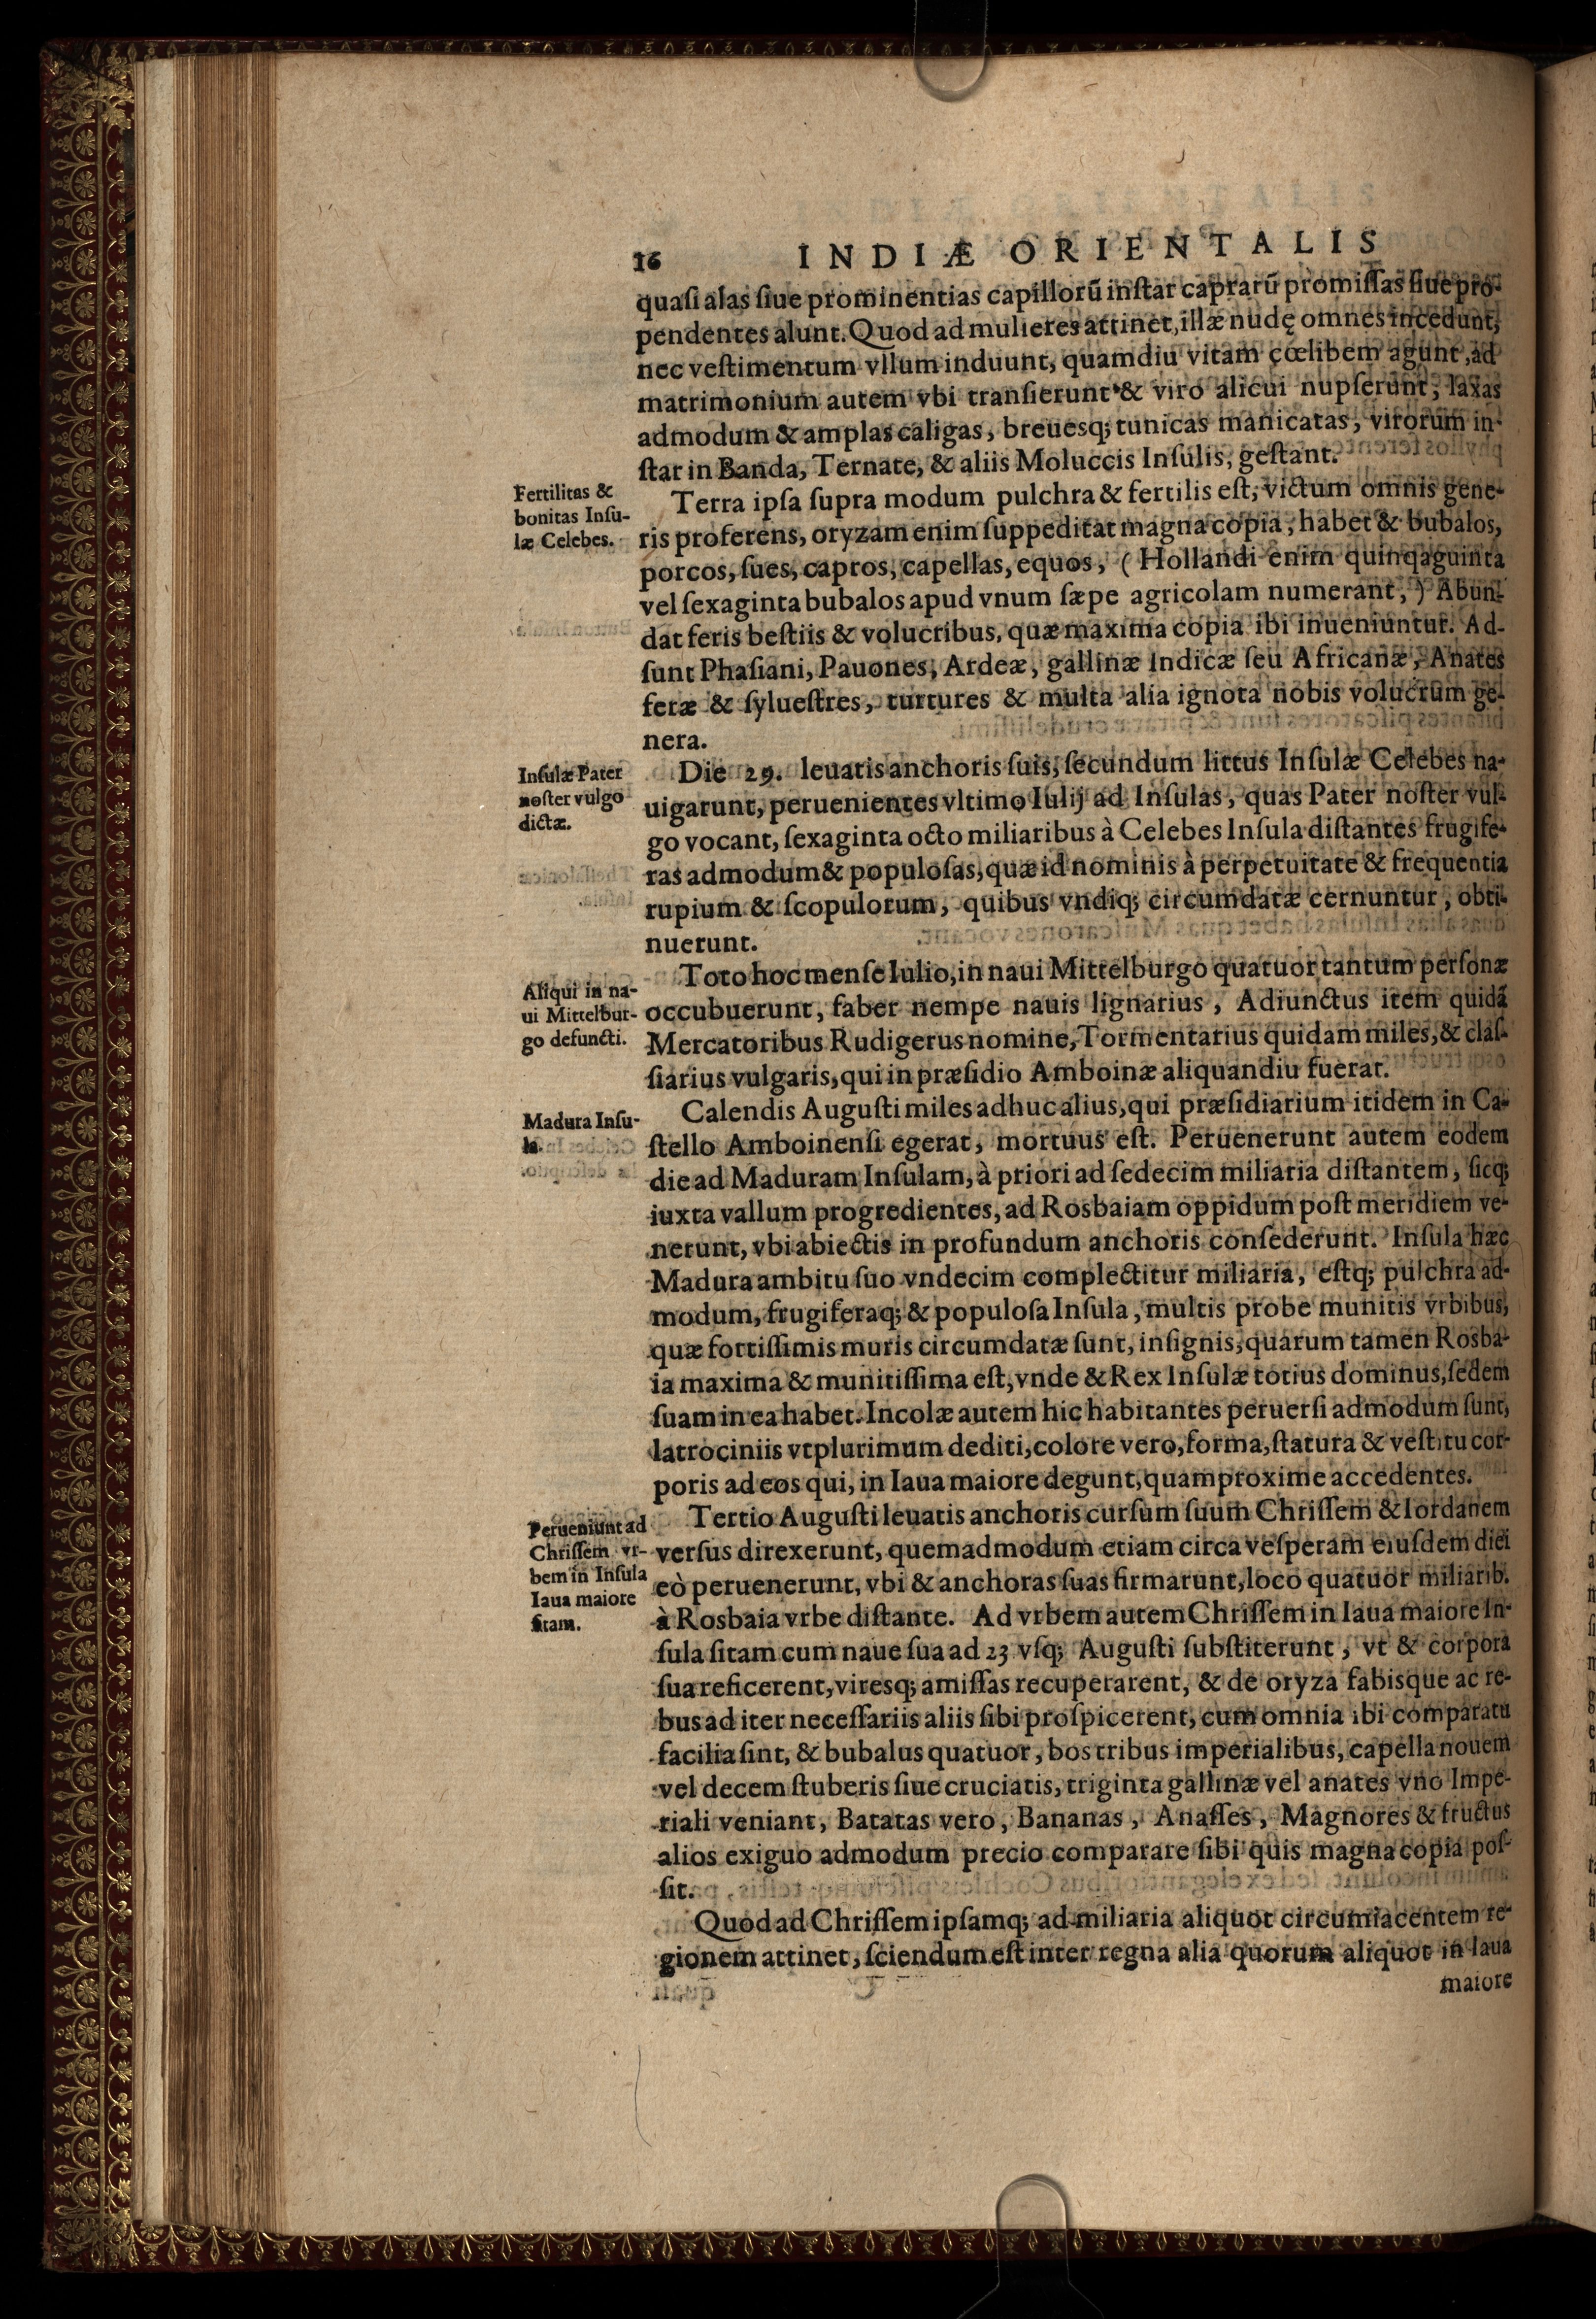 16 INDIÆ ORIENTALIS
quasi alas siue prominentias capillorū instar caprarū promissas siue pro-
pendentes alunt. Quod ad mulieres attinet, illæ nudę omnes incedunt,
nec vestimentum vllum induunt, quamdiu vitam çœlibem agunt, ad
matrimonium autem vbi transierunt & viro alicui nupserunt, laxas
admodum & amplas caligas, breuesq; tunicas manicatas, virorum in-
star in Banda, Ternate, & aliis Moluccis Insulis, gestant.
Fertilitas &
bonitas Insu-
læ Celebes.
Terra ipsa supra modum pulchra & fertilis est, victum omnis gene-
ris proferens, oryzam enim suppeditat magna copia, habet & bubalos,
porcos, sues, capros, capellas, equos, (Hollandi enim quinqaguinta
vel sexaginta bubalos apud vnum sæpe agricolam numerant,) Abun-
dat feris bestiis & volucribus, quæ maxima copia ibi inueniuntur. Ad-
sunt Phasiani, Pauones, Ardeæ, gallinæ Indicæ seu Africanæ, Anates
feræ & syluestres, turtures & multa alia ignota nobis volucrum ge-
nera.
Insulæ Pater
noster vulgo
dictæ.
Die 29. leuatis anchoris suis, secundum littus Insulæ Celebes na-
uigarunt, peruenientes vltimo Iulij ad Insulas, quas Pater noster vul-
go vocant, sexaginta octo miliaribus à Celebes Insula distantes frugife-
ras admodum & populosas, quæ id nominis à perpetuitate & frequentia
rupium & scopulorum, quibus vndiq; circumdatæ cernuntur, obti-
nuerunt.
Aliqui in na-
ui Mittelbur-
go defuncti.
Toto hoc mense Iulio, in naui Mittelburgo quatuor tantum personæ
occubuerunt, faber nempe nauis lignarius, Adiunctus item quidā
Mercatoribus Rudigerus nomine, Tormentarius quidam miles, & clas-
siarius vulgaris, qui in præsidio Amboinæ aliquandiu fuerat.
Madura Insu-
la.
Calendis Augusti miles adhuc alius, qui præsidiarium itidem in Ca-
stello Amboinensi egerat, mortuus est. Peruenerunt autem eodem
die ad Maduram Insulam, à priori ad sedecim miliaria distantem, sicq;
iuxta vallum progredientes, ad Rosbaiam oppidum post meridiem ve-
nerunt, vbi abiectis in profundum anchoris consederunt. Insula hæc
Madura ambitu suo vndecim complectitur miliaria, estq; pulchra ad-
modum, frugiferaq; & populosa Insula, multis probe munitis vrbibus,
quæ fortissimis muris circumdatæ sunt, insignis, quarum tamen Rosba-
ia maxima & munitissima est, vnde & Rex Insulæ totius dominus, sedem
suam in ea habet. Incolæ autem hic habitantes peruersi admodum sunt,
latrociniis vt plurimum dediti, colore vero, forma, statura & vestitu cor-
poris ad eos qui, in Iaua maiore degunt, quam proxime accedentes.
Perueniunt ad
Chrissem vr-
bem in Insula
Iaua maiore
sitam.
Tertio Augusti leuatis anchoris cursum suum Chrissem & Iordanem
versus direxerunt, quemadmodum etiam circa vesperam eiusdem diei
eò peruenerunt, vbi & anchoras suas firmarunt, loco quatuor miliarib.
à Rosbaia vrbe distante. Ad vrbem autem Chrissem in Iaua maiore In-
sula sitam cum naue sua ad 23 vsq; Augusti substiterunt, vt & corpora
sua reficerent, viresq; amissas recuperarent, & de oryza fabisque ac re-
bus ad iter necessariis aliis sibi prospicerent, cum omnia ibi comparatu
facilia sint, & bubalus quatuor, bos tribus imperialibus, capella nouem
vel decem stuberis siue cruciatis, triginta gallinæ vel anates vno Impe-
riali veniant, Batatas vero, Bananas, Anasses, Magnores & fructus
alios exiguo admodum precio comparare sibi quis magna copia pos-
sit.
Quod ad Chrissem ipsamq; ad miliaria aliquot circumiacentem re-
gionem attinet, sciendum est inter regna alia quorum aliquot in Iaua
maiore